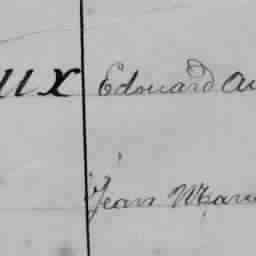 ux Edouard Au
Jean Mari